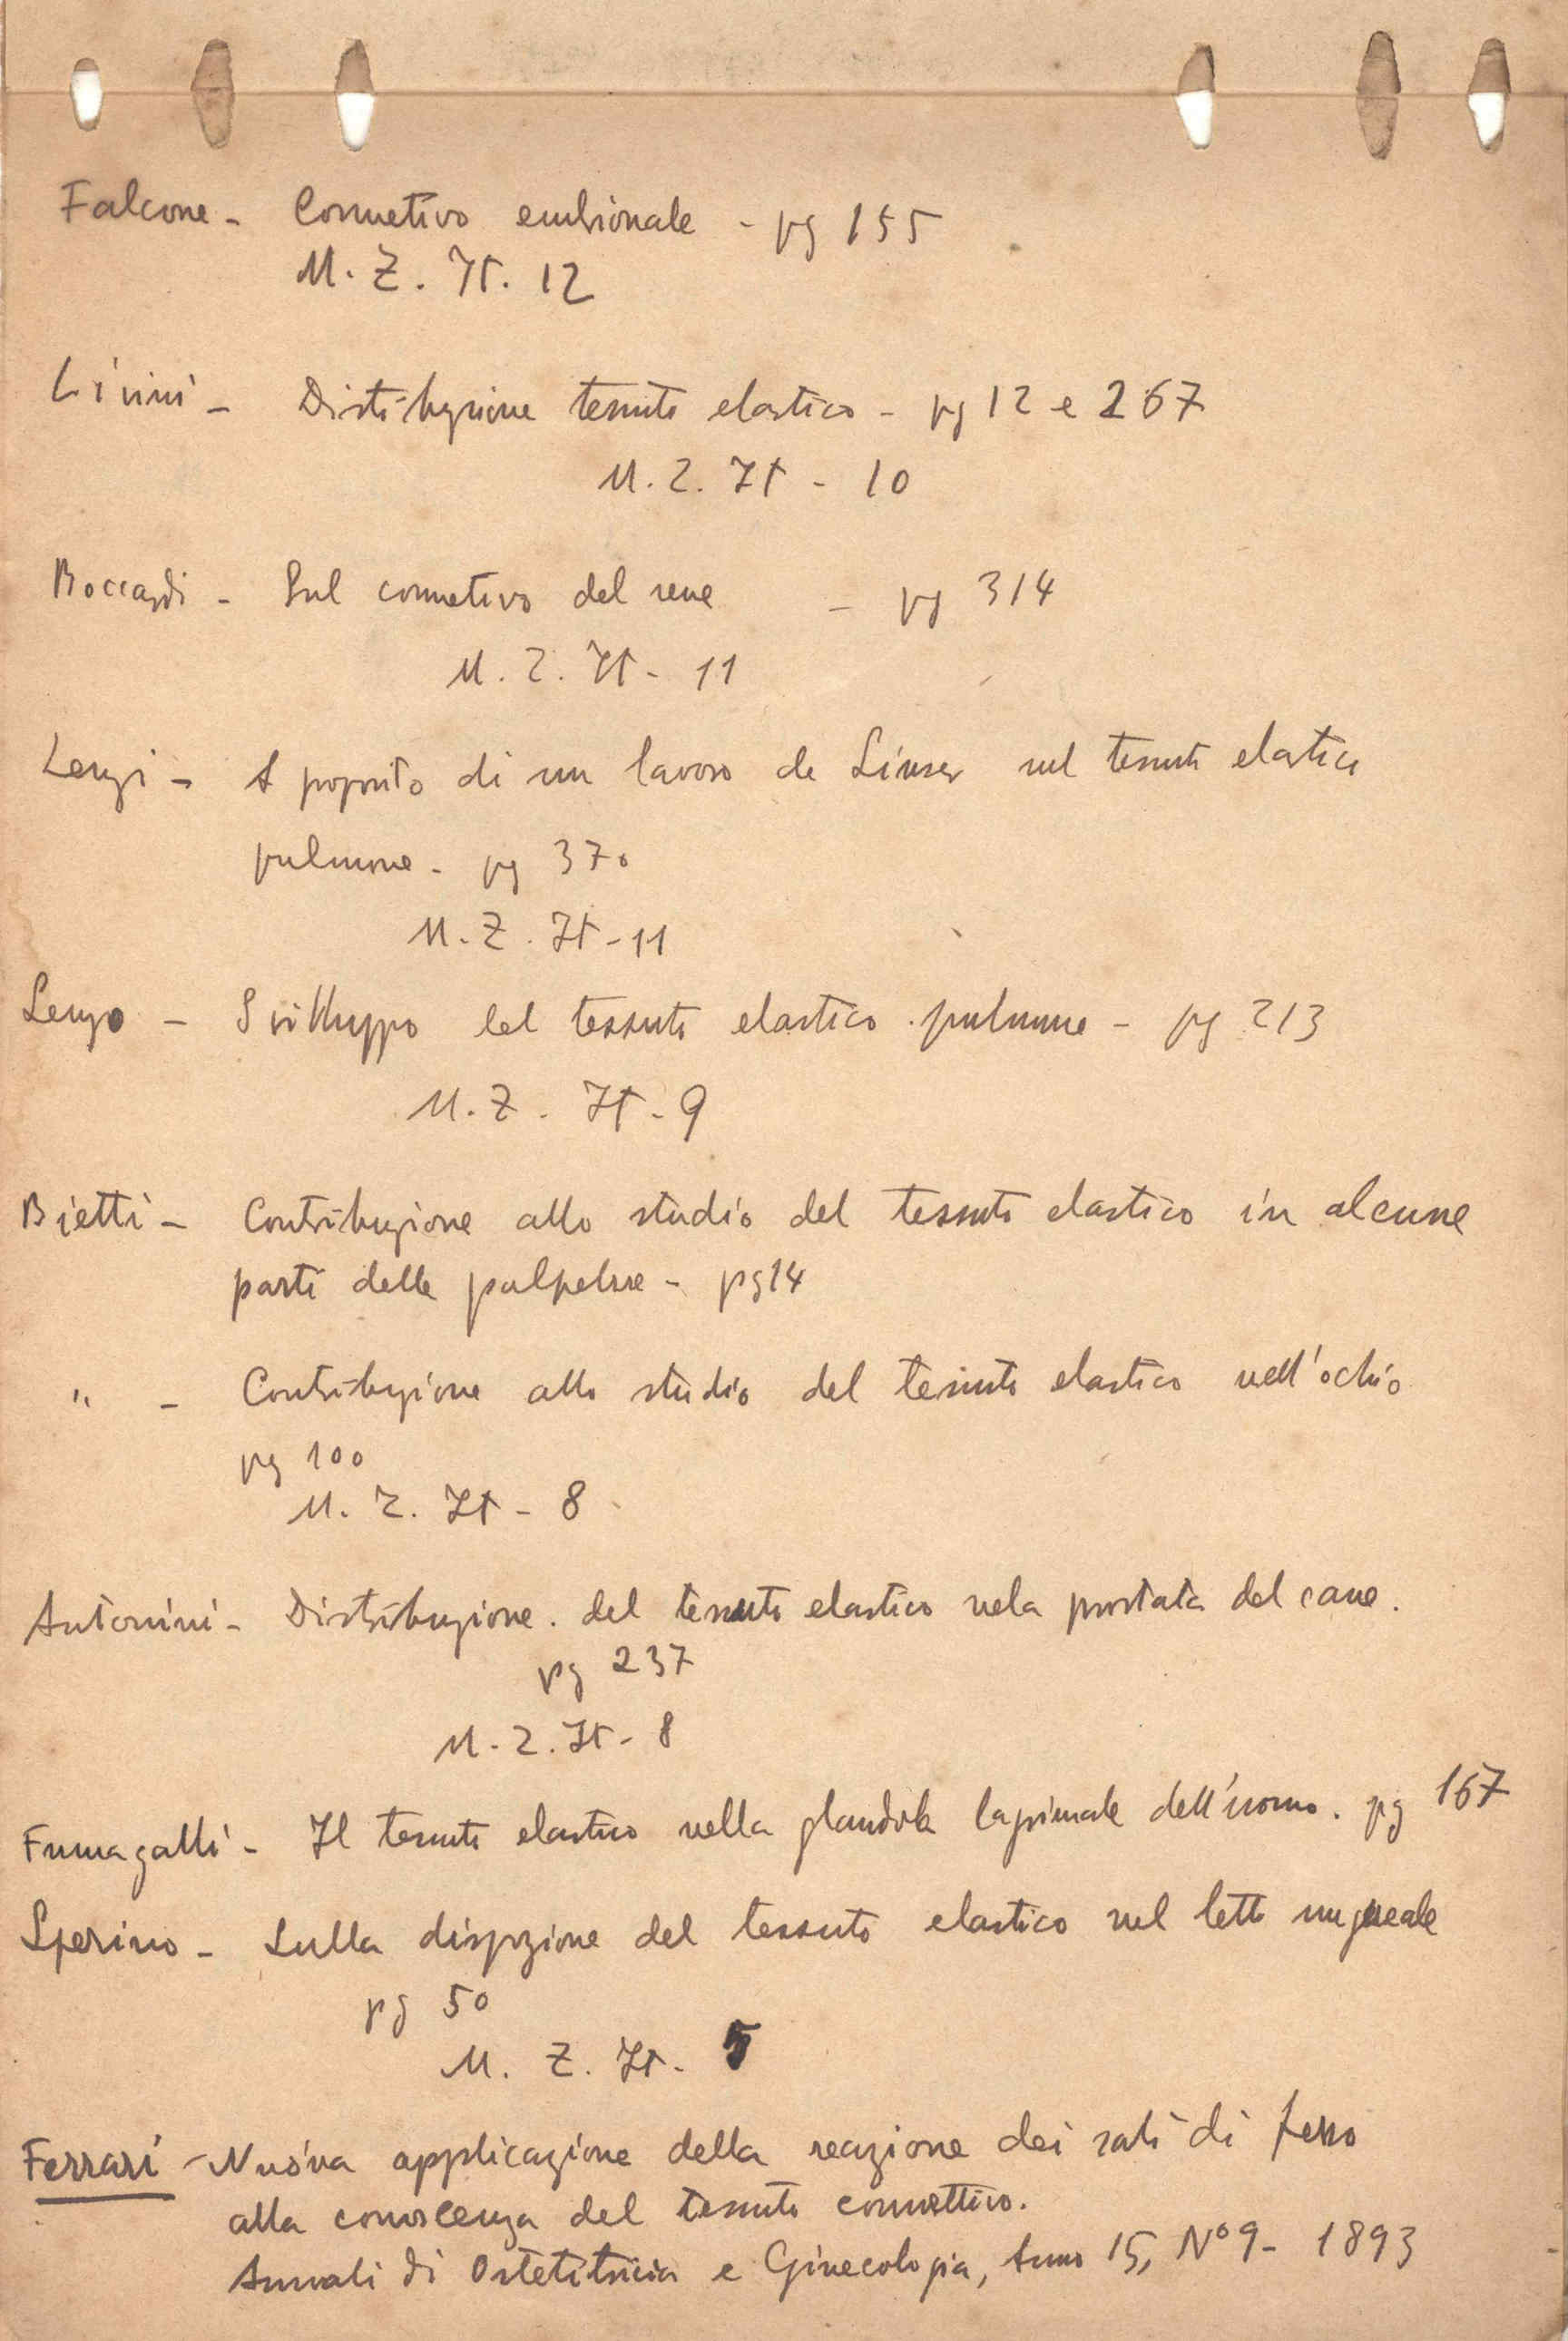 Falcone - Connetivo embrionale - pg 155
M. Z. It. 12
Livini - Distribuzione tessuto elastico - pg 12 e 267
M. Z. It - 10
Boccardi - Sul connetivo del rene - pg 314
M. Z. It - 11
Lenzi - A proposito di un lavoro de Linser sul tessuto elastico
pulmone - pg 370
M. Z. It - 11
Lenzo - Sviluppo del tessuto elastico pulmone - pg 213
M. Z. It - 9
Bietti - Contribuzione allo studio del tessuto elastico in alcune
parti delle palpebre - pg 14
" - Contribuzione allo studio del tessuto elastico nell'ochio
pg 100
M. Z. It - 8
Antonini - Distribuzione. del tessuto elastico nela prostata del cane.
pg 237
M. Z. It - 8
Fumagalli - Il tessuto elastico nella glandola lagrimale dell'uomo. pg 167
Sperino - Sulla dispozione del tessuto elastico nel letto ungueale
pg 50
M. Z. It - 5
Ferrari - Nuova applicazione della reazione dei sali di ferro
alla conoscenza del tessuto connettivo.
Annali di Ostetitricia e Ginecologia, Anno 15, Nº 9 - 1893